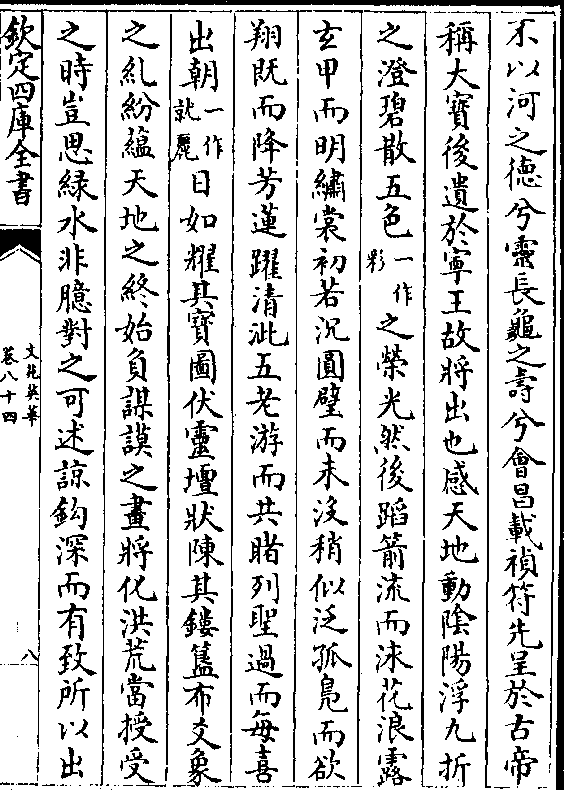 不以河之德兮靈長龜之壽兮會昌載禎符先呈於古帝
稱大寳後遺於寧王故將出也感天地動陰陽浮九折
之澄碧散五色一作彩之榮光然後蹈箭流而涑花浪露
玄甲而明繡裳初若沉圓璧而未沒稍似泛孤鳬而欲
翔既而降芳蓮躍清泚五老游而共睹列聖過而每喜
出朝一作就麗日如耀其寳圖伏靈壇狀陳其鏤簋布爻象
之糺紛蘊天地之終始負謀謨之畫將化洪荒當授受
之時豈思緑水非臆對之可述諒鈎深而有致所以出
欽定四庫全書
文苑英華
卷八十四
八